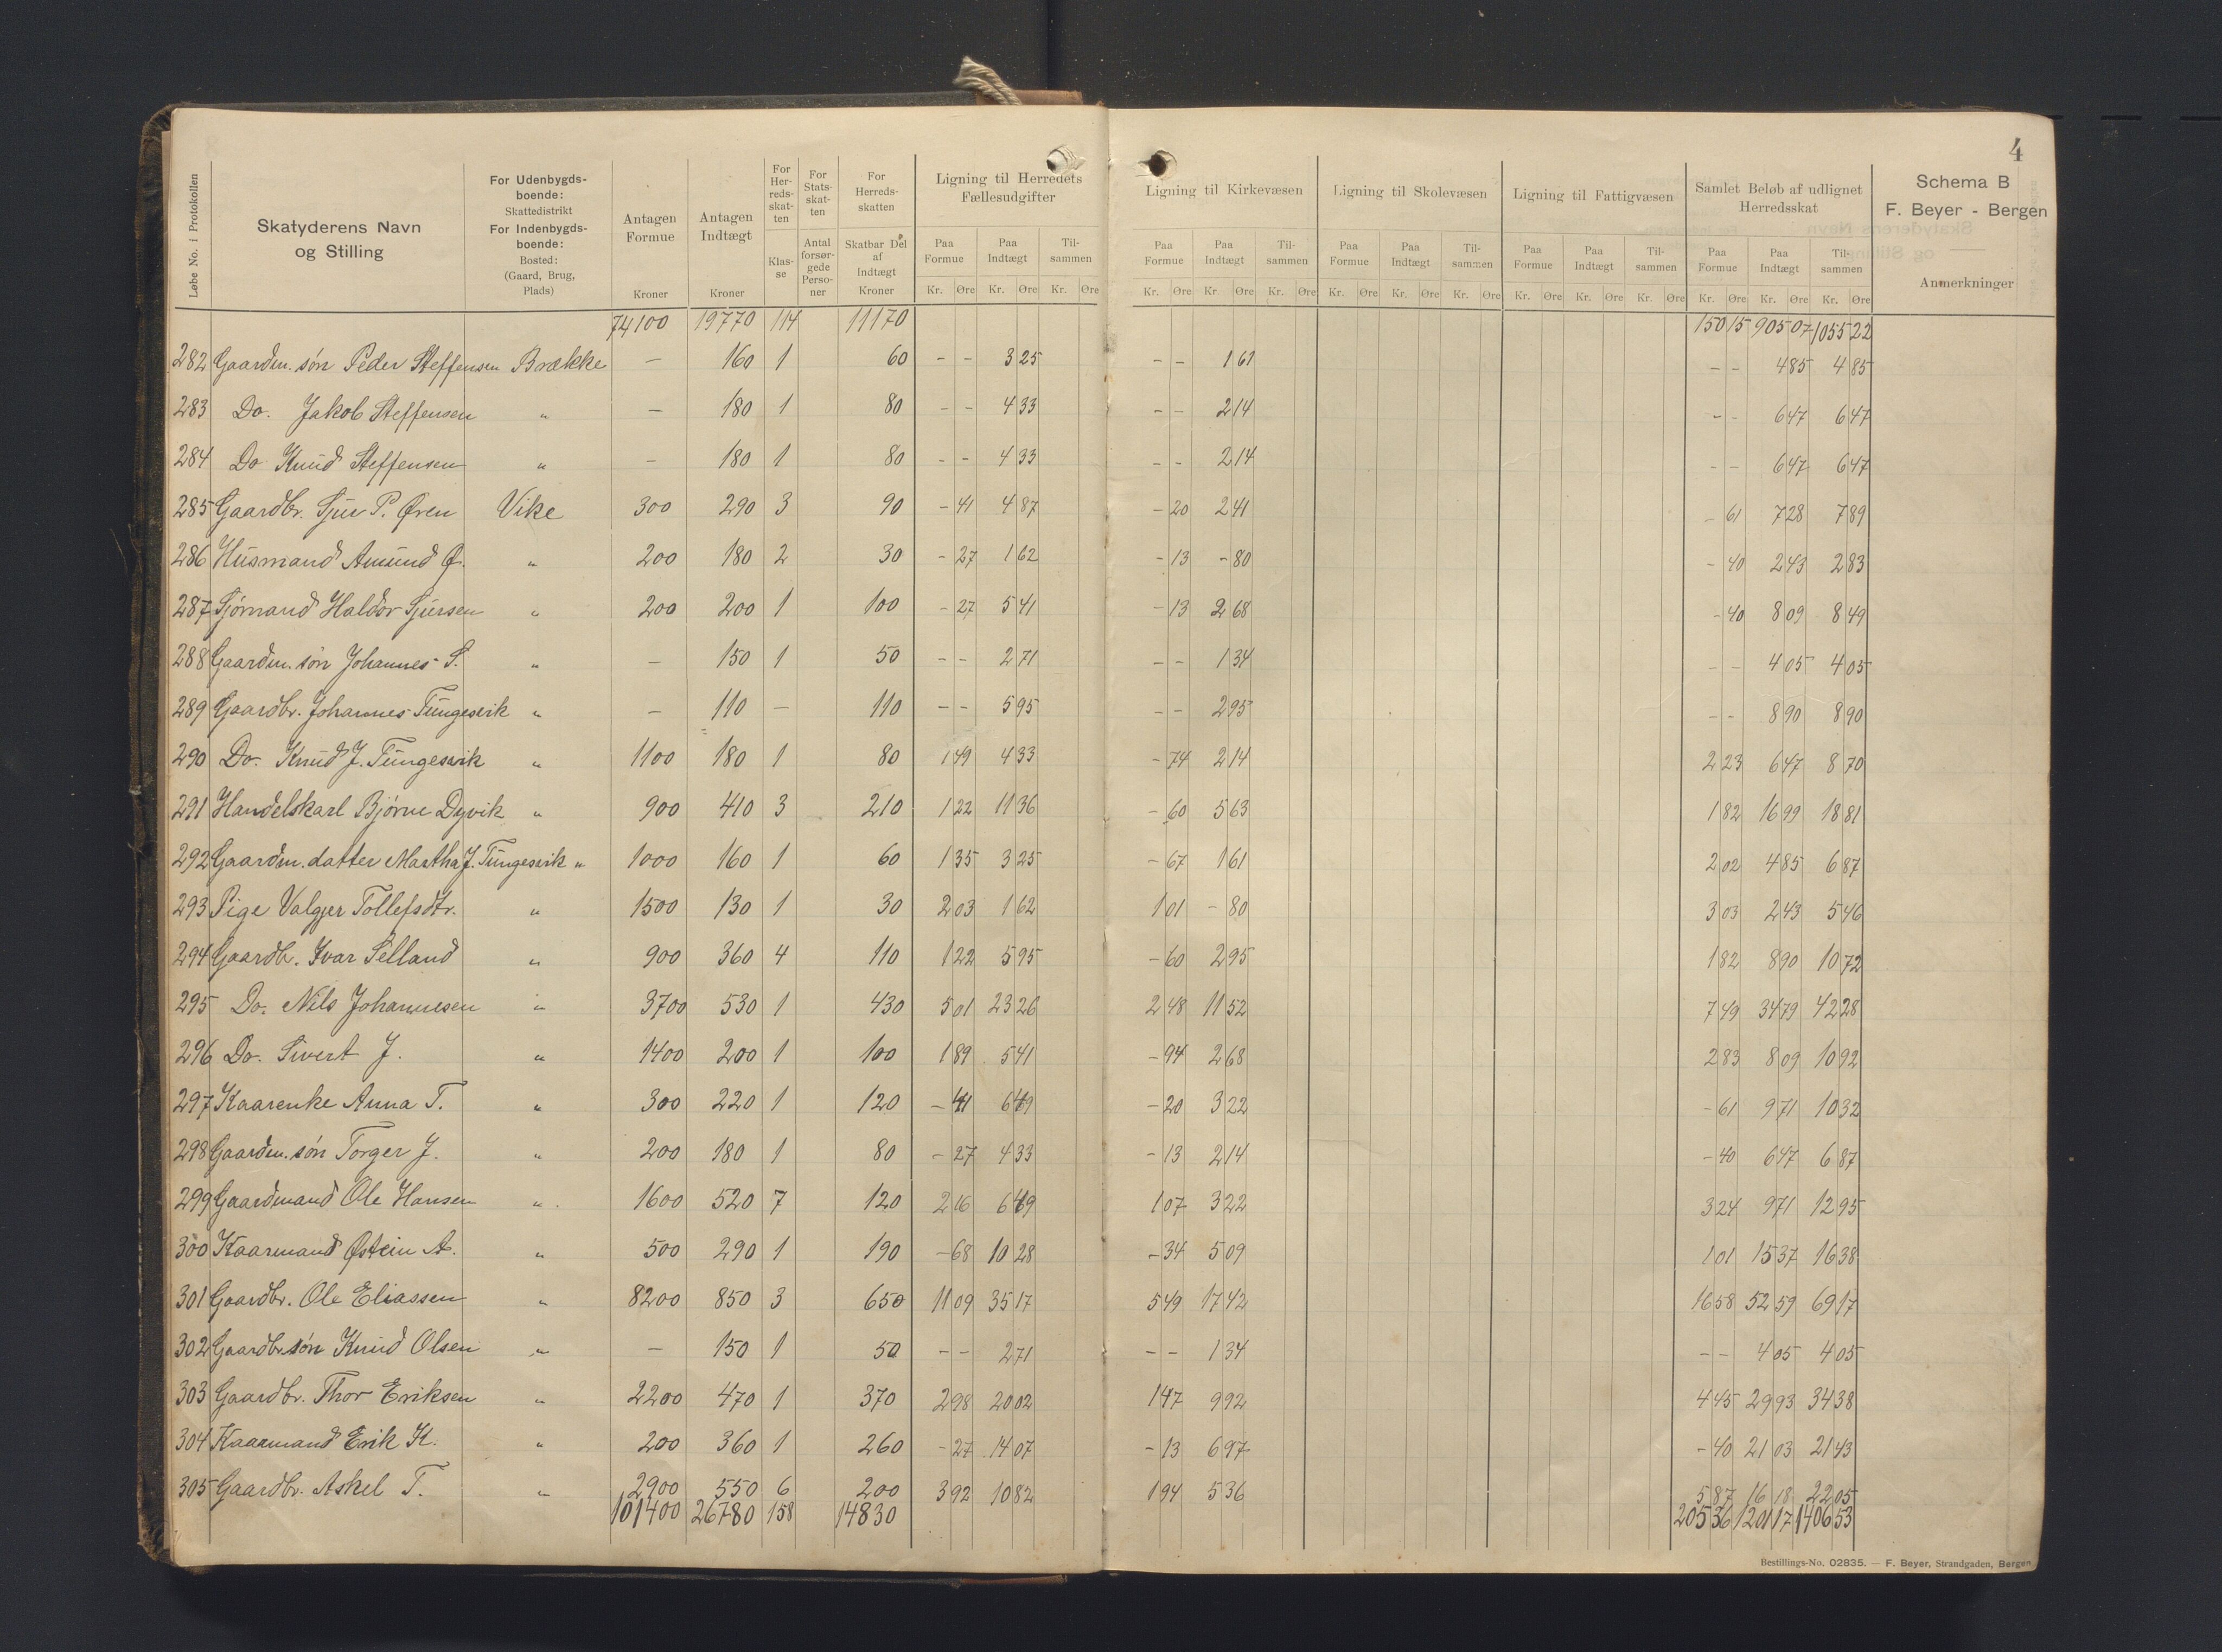 4
Løbe No. i Protokollen
Skatyderens Navn og Stilling
For Udenbygdsboende: Skattedistrikt For Indenbygdsboende: Bosted: (Gaard, Brug, Plads)
Antagen Formue Kroner
Antagen Indtægt Kroner
For Herredsskatten Klasse
For Statsskatten Antal forsørgede Personer
For Herredsskatten Skatbar Del af Indtægt Kroner
Ligning til Herredets Fællesudgifter
Paa Formue Paa Indtægt Tilsammen
Kr. Øre Kr. Øre Kr. Øre
Ligning til Kirkevæsen
Paa Formue Paa Indtægt Tilsammen
Kr. Øre Kr. Øre Kr. Øre
Ligning til Skolevæsen
Paa Formue Paa Indtægt Tilsammen
Kr. Øre Kr. Øre Kr. Øre
Ligning til Fattigvæsen
Paa Formue Paa Indtægt Tilsammen
Kr. Øre Kr. Øre Kr. Øre
Samlet Beløb af udlignet Herredsskat
Paa Formue Paa Indtægt Tilsammen
Kr. Øre Kr. Øre Kr. Øre
Schema B
F. Beyer - Bergen
Anmerkninger
74100 19770 114 11170 150 15 905 07 1055 22
282 Gaardm. søn Peder Steffensen Brække — 160 1 60 - - 3 25 - - 1 61 - - 4 85 4 85
283 Do. Jakob Steffensen " — 180 1 80 - - 4 33 - - 2 14 - - 6 47 6 47
284 Do Knud Steffensen " — 180 1 80 - - 4 33 - - 2 14 - - 6 47 6 47
285 Gaardbr. Sjur P. Øren Vike 300 290 3 90 - 41 4 87 - 20 2 41 - 61 7 28 7 89
286 Husmand Amund Ø. " 200 180 2 30 - 27 1 62 - 13 - 80 - 40 2 43 2 83
287 Sjømand Haldor Sjursen " 200 200 1 100 - 27 5 41 - 13 2 68 - 40 8 09 8 49
288 Gaardm. søn Johannes S. " — 150 1 50 - - 2 71 - - 1 34 - - 4 05 4 05
289 Gaardbr. Johannes Tungesvik " — 110 — 110 - - 5 95 - - 2 95 - - 8 90 8 90
290 Do. Knud J. Tungesvik " 1100 180 1 80 1 49 4 33 - 74 2 14 2 23 6 47 8 70
291 Handelskarl Bjørne Dyvik " 900 410 3 210 1 22 11 36 - 60 5 63 1 82 16 99 18 81
292 Gaardm. datter Martha J. Tungesvik " 1000 160 1 60 1 35 3 25 - 67 1 61 2 02 4 85 6 87
293 Pige Valgjer Tollefsdtr. " 1500 130 1 30 2 03 1 62 1 01 - 80 3 03 2 43 5 46
294 Gaardb. Ivar Selland " 900 360 4 110 1 22 5 95 - 60 2 95 1 82 8 90 10 72
295 Do. Nils Johannesen " 3700 530 1 430 5 01 23 26 2 48 11 52 7 49 34 79 42 28
296 Do. Sivert J. " 1400 200 1 100 1 89 5 41 - 94 2 68 2 83 8 09 10 92
297 Kaarenke Anna T. " 300 220 1 120 - 41 6 49 - 20 3 22 - 61 9 71 10 32
298 Gaardm. søn Torger J. " 200 180 1 80 - 27 4 33 - 13 2 14 - 40 6 47 6 87
299 Gaardmand Ole Hansen " 1600 520 7 120 2 16 6 49 1 07 3 22 3 24 9 71 12 95
300 Kaarmand Østein A. " 500 290 1 190 - 68 10 28 - 34 5 09 1 01 15 37 16 38
301 Gaardbr. Ole Eliassen " 8200 850 3 650 11 09 35 17 5 49 17 42 16 58 52 59 69 17
302 Gaardbr. søn Knud Olsen " — 150 1 50 - - 2 71 - - 1 34 - - 4 05 4 05
303 Gaardbr. Thor Eriksen " 2200 470 1 370 2 98 20 02 1 47 9 92 4 45 29 93 34 38
304 Kaarmand Erik K. " 200 360 1 260 - 27 14 07 - 13 6 97 - 40 21 03 21 43
305 Gaardbr. Askel T. " 2900 550 6 200 3 92 10 82 1 94 5 36 5 87 16 18 22 05
101400 26780 158 14830 205 36 1201 17 1406 53
Bestillings-No. 02835. — F. Beyer, Strandgaden, Bergen